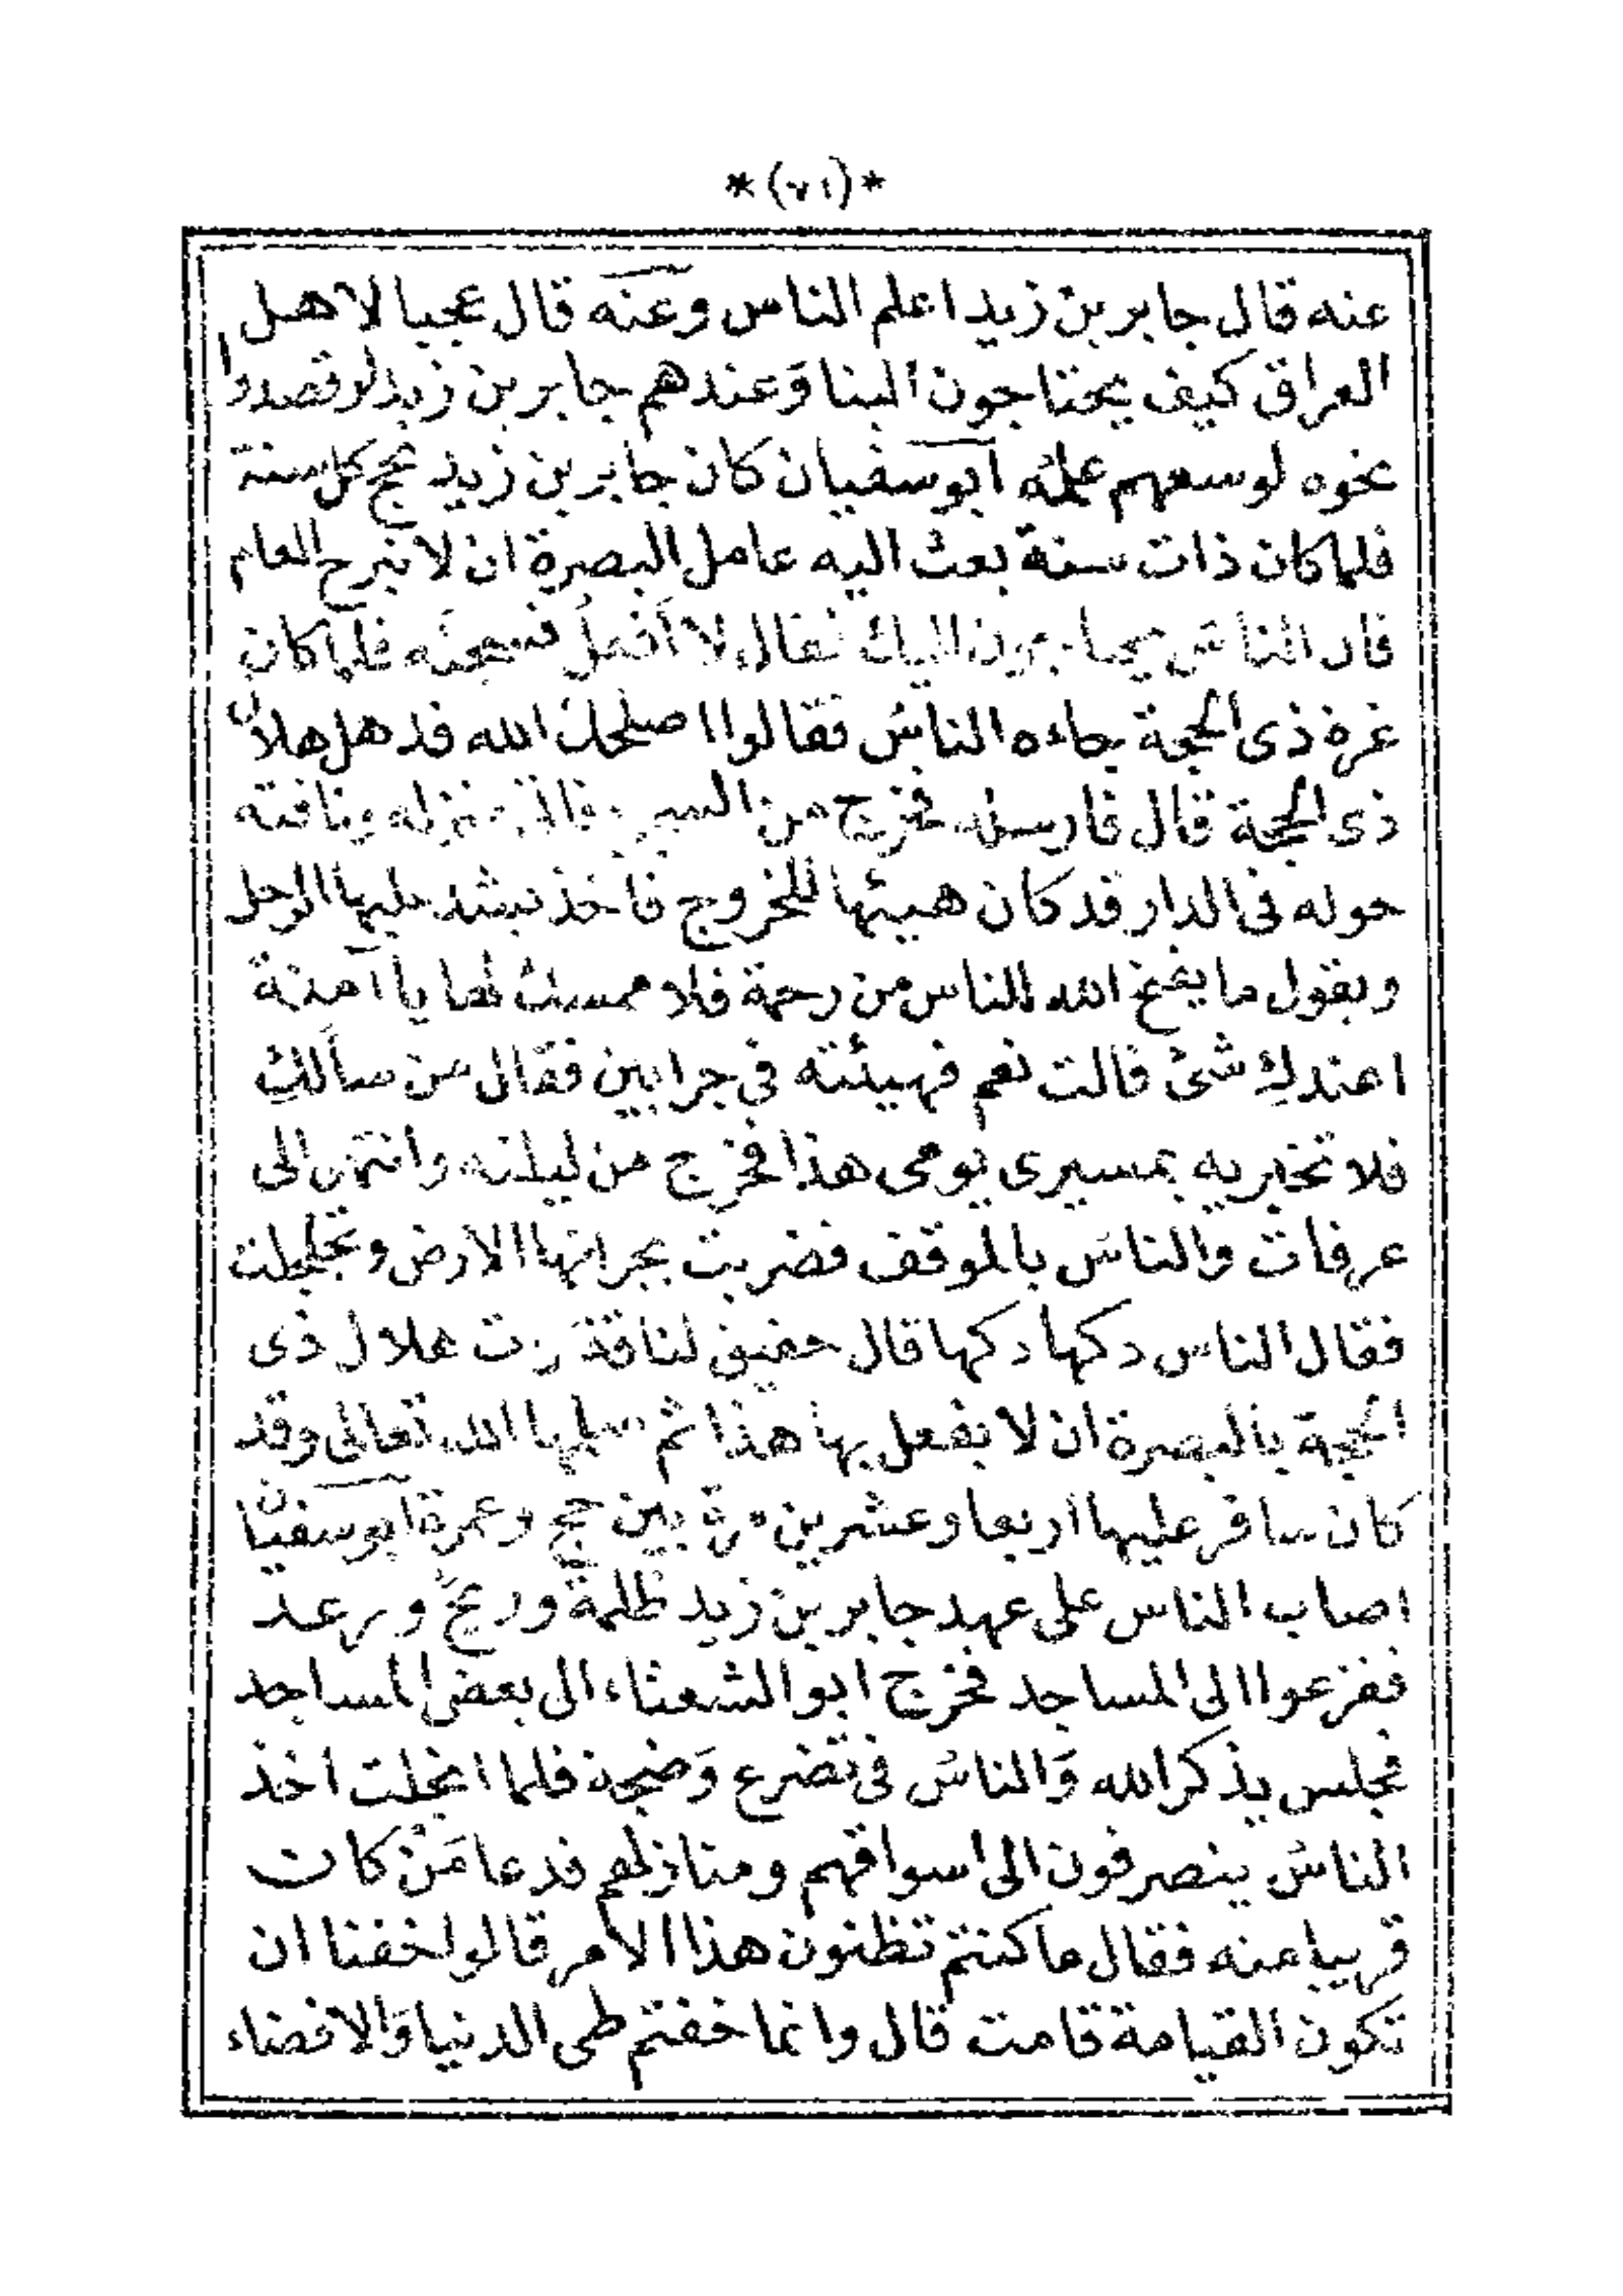 *(٧١)*
عنه قال جابر بن زيد اعلم الناس وعنه قال عجبا لاهل
العراق كيف يحتاجون الينا وَعندهم جابر بن زيد لو قصدوا
نحوه لوسعهم علمه ابو سفيان كان جابر بن زيد يحج كل سنة
فلما كان ذات سنة بعث اليه عامل البصرة ان لا تبرح العام
فان الناسَ يحتاجون اليك فقال لا أفعلُ فسجنَه فلما كان
غرة ذى الحجة جاءه الناسُ فقالوا اصلحك الله قد هل هلالُ
ذى الحجة قال فارسله فخرج من السجن فاتى منزله وناقته
حوله فى الدار قد كان هيئها للخروج فاخذ يشد عليها الرحل
ويقول ما يفتح الله للناس من رحمة فلا ممسك لها يا آمنة
اعندكِ شئ قالت نعم فهيئته في جرابين فقال من سألكِ
فلا تخبريه بمسيرى يومى هذا فخرج من ليلته وانتهى الى
عرفات والناسُ بالموقف فضربت بجرانها الارض وتجلجلت
فقال الناس ذكها ذكها قال حقيق لناقة رات هلال ذى
الحجة بالبصرة ان لا يفعل بها هذا ثم سلمها الله تعالى وقد
كان سافر عليها اربعا وعشرين مرة بين حج وعمرة ابو سفيان
اصاب الناس على عهد جابر بن زيد ظلمة وريحٌ ورعد
ففزعوا الى المساجد فخرج ابو الشعثاء الى بعض المساجد
فجلس يذكر الله وَالناسُ فى تضرع وَضجة فلما انجلت اخذ
الناسُ ينصرفون الى اسواقهم ومنازلهم فدعا مَنْ كان
قريبا منه فقال ما كنتم تظنون هذا الامر قالوا خفنا ان
تكون القيامة قامت قال وانما خفتم طى الدنيا وَالافضاء